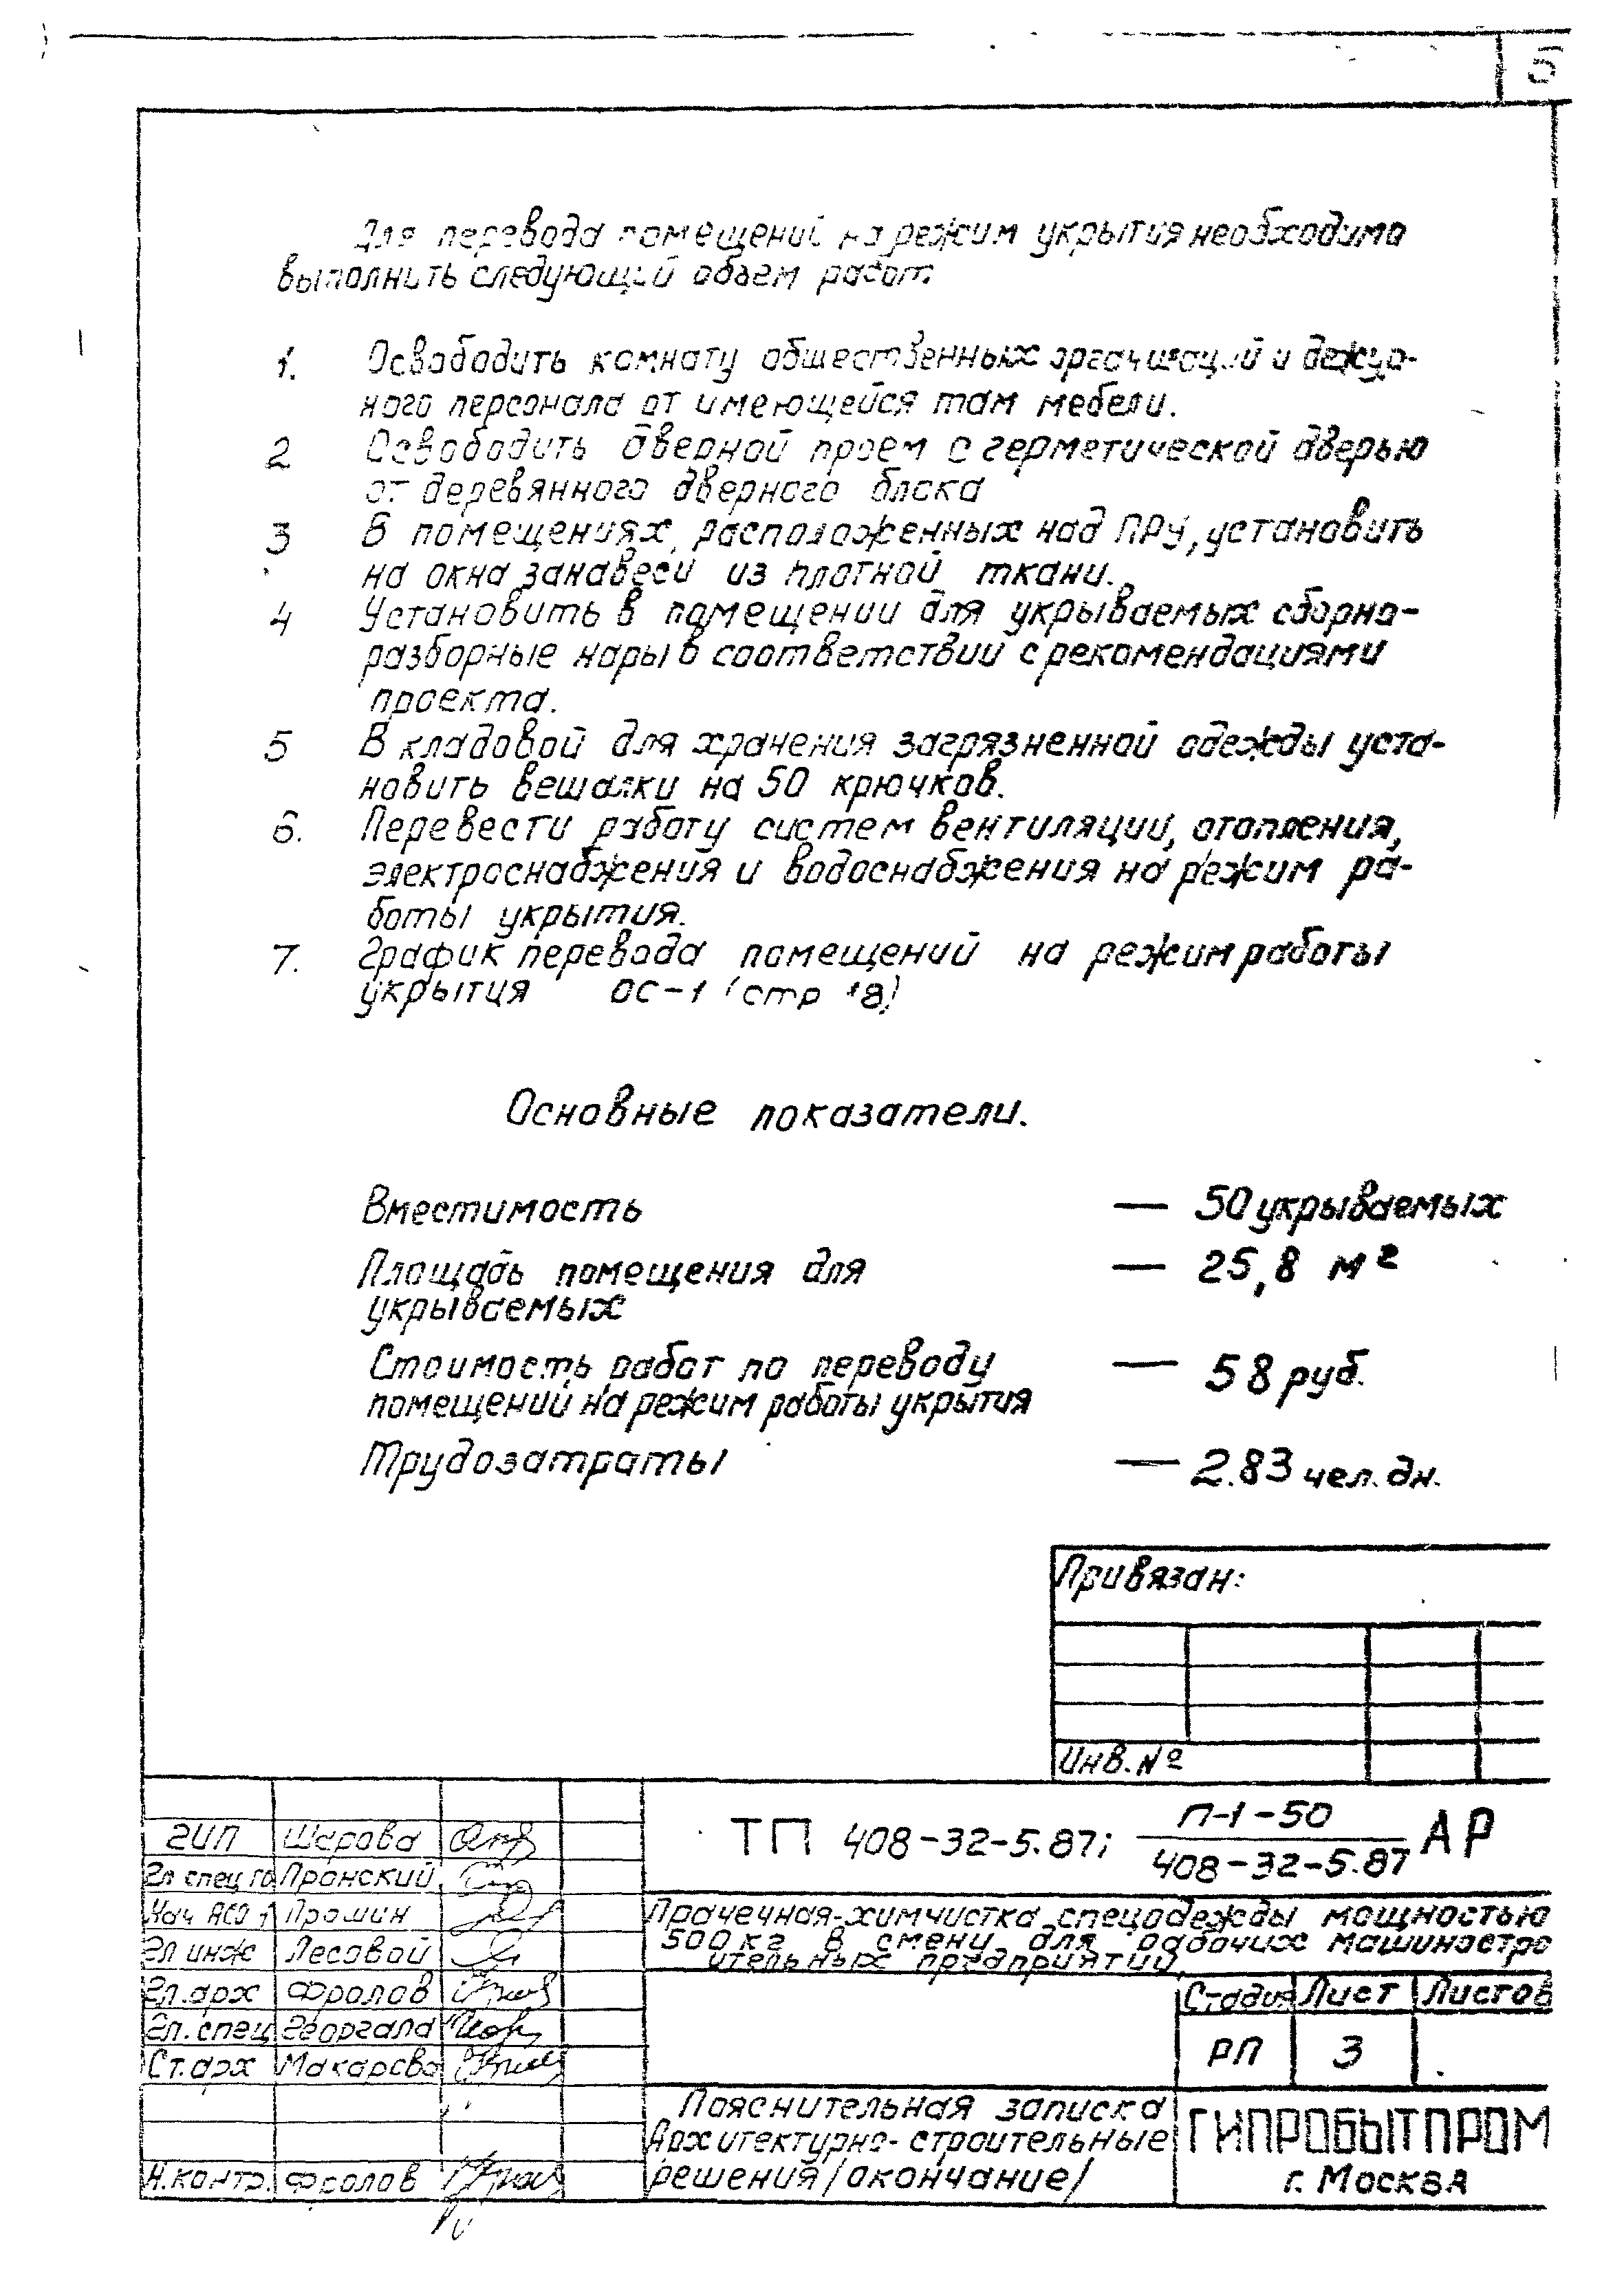 5
Для перевода помещений на режим укрытия необходимо
выполнить следующий объем работ
1. Освободить комнату общественных организаций и дежур-
ного персонала от имеющейся там мебели.
2 Освободить дверной проем с герметической дверью
от деревянного дверного блока
3 В помещениях, расположенных над ПРУ, установить
на окна занавеси из плотной ткани.
4 Установить в помещении для укрываемых сборно-
разборные нары в соответствии с рекомендациями
проекта.
5 В кладовой для хранения загрязненной одежды уста-
новить вешалки на 50 крючков.
6. Перевести работу систем вентиляции, отопления,
электроснабжения и водоснабжения на режим ра-
боты укрытия.
7. График перевода помещений на режим работы
укрытия ОС-1 (стр 18)
Основные показатели.
Вместимость — 50 укрываемых
Площадь помещения для — 25,8 м²
укрываемых
Стоимость работ по переводу — 58 руб.
помещений на режим работы укрытия
Трудозатраты — 2.83 чел. дн.
Привязан:
Инв. №
ТП 408-32-5.87; П-1-50 АР
408-32-5.87
ГИП Шарова
Гл спец ГО Пронский
Нач АСО 1 Прошин
Гл инж Лесовой
Гл. арх Фролов
Гл. спец Георгала
Ст. арх Макарова
Н. контр. Фролов
Прачечная-химчистка спецодежды мощностью
500 кг в смену для рабочих машиностро
ительных предприятий
Стадия Лист Листов
РП 3
Пояснительная записка
Архитектурно-строительные
решения /окончание/
ГИПРОБЫТПРОМ
г. Москва